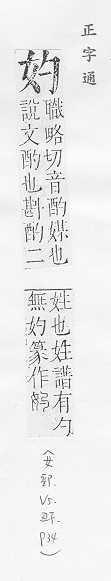 正字通
妁
職略切音酌媒也
說文酌也斟酌二
姓也姓譜有勺
無妁篆作
(女部. V5. 丑下. P34)